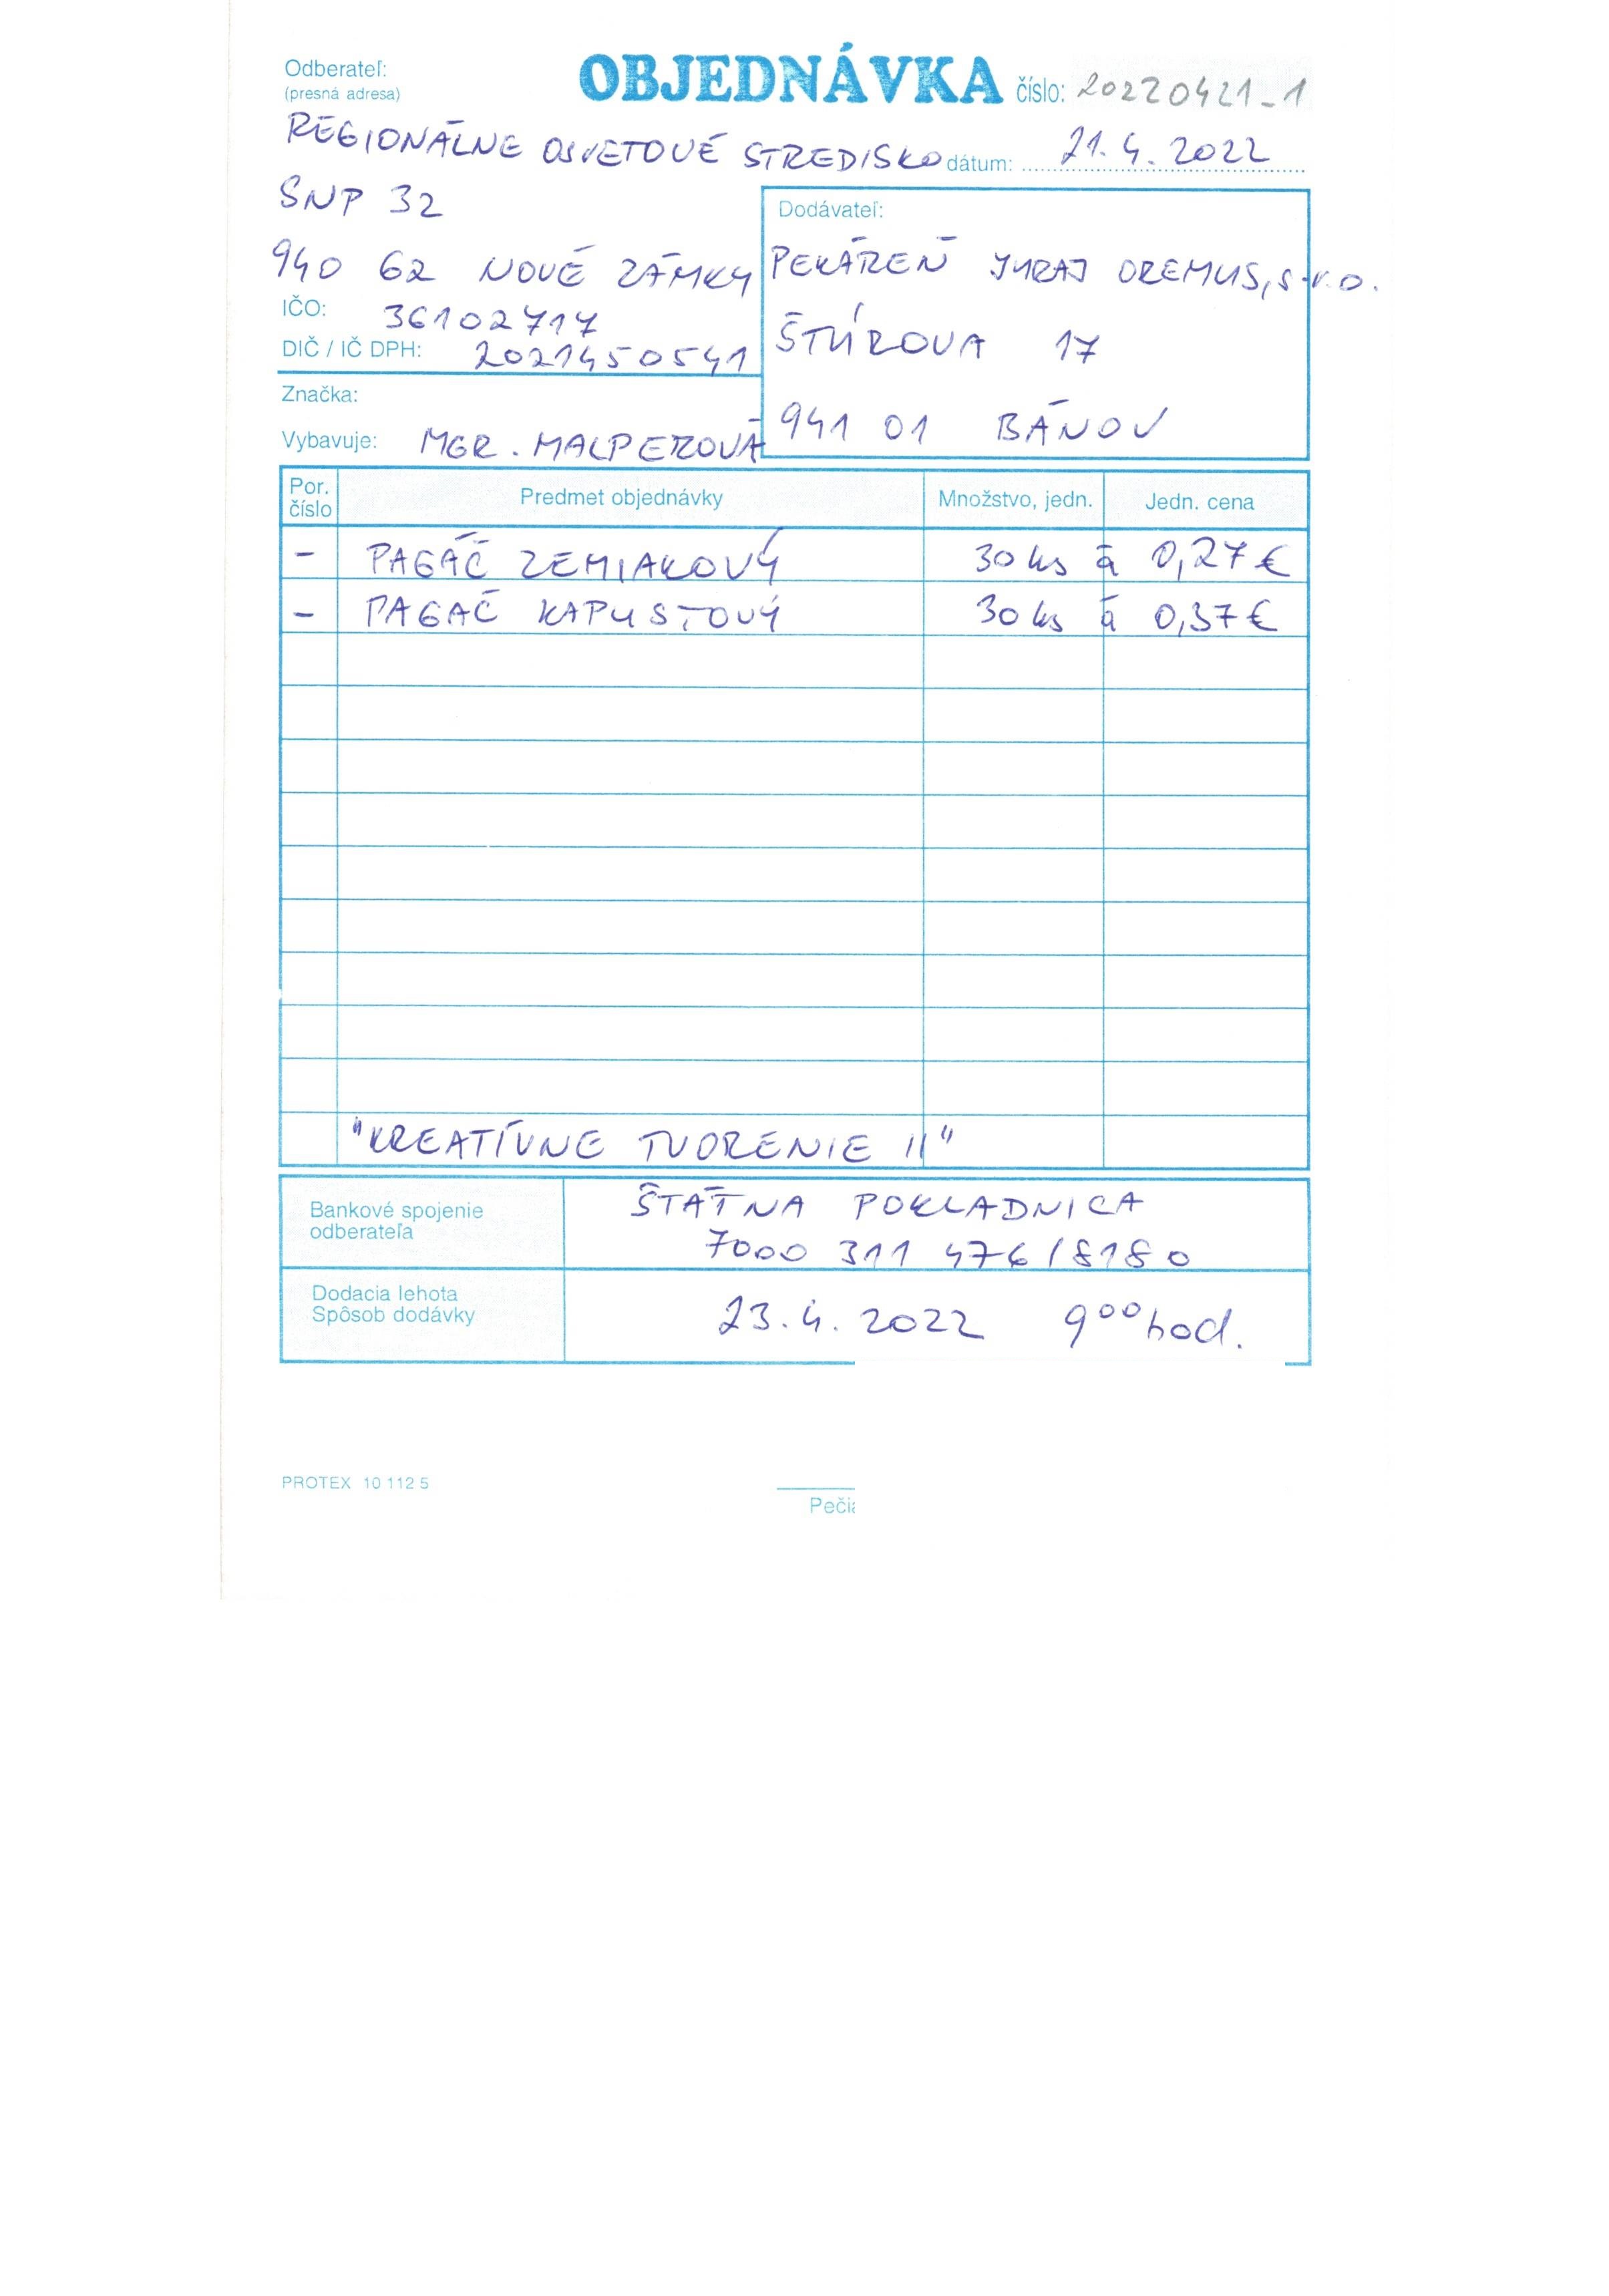 Odberateľ:
(presná adresa)
OBJEDNÁVKA číslo: 20220421_1
REGIONÁLNE OSVETOVÉ STREDISKO dátum: 21.4.2022
SNP 32
940 62 NOVÉ ZÁMKY
IČO: 36102717
DIČ / IČ DPH: 2021450541
Značka:
Vybavuje: MGR. MALPEROVÁ
Dodávateľ:
PEKÁREŇ JURAJ OREMUS, s.r.o.
ŠTÚROVA 17
941 01 BÁNOV
Por. číslo Predmet objednávky Množstvo, jedn. Jedn. cena
- PAGÁČ ZEMIAKOVÝ 30 ks á 0,27 €
- PAGÁČ KAPUSTOVÝ 30 ks á 0,37 €
"KREATÍVNE TVORENIE II"
Bankové spojenie
odberateľa
ŠTÁTNA POKLADNICA
7000 311 476/8180
Dodacia lehota
Spôsob dodávky
23.4.2022 9⁰⁰ hod.
PROTEX 10 112 5